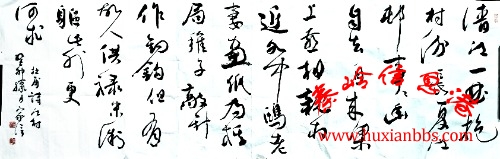 清江一曲抱
村流長夏江
村事事幽
自去自来梁
上燕相親相
近水中鸥老
妻画纸为棋
局稚子敲针
作钓钩但有
故人供禄米微
躯此外更
何求
杜甫詩江村
癸卯
www.huxianbbs.com